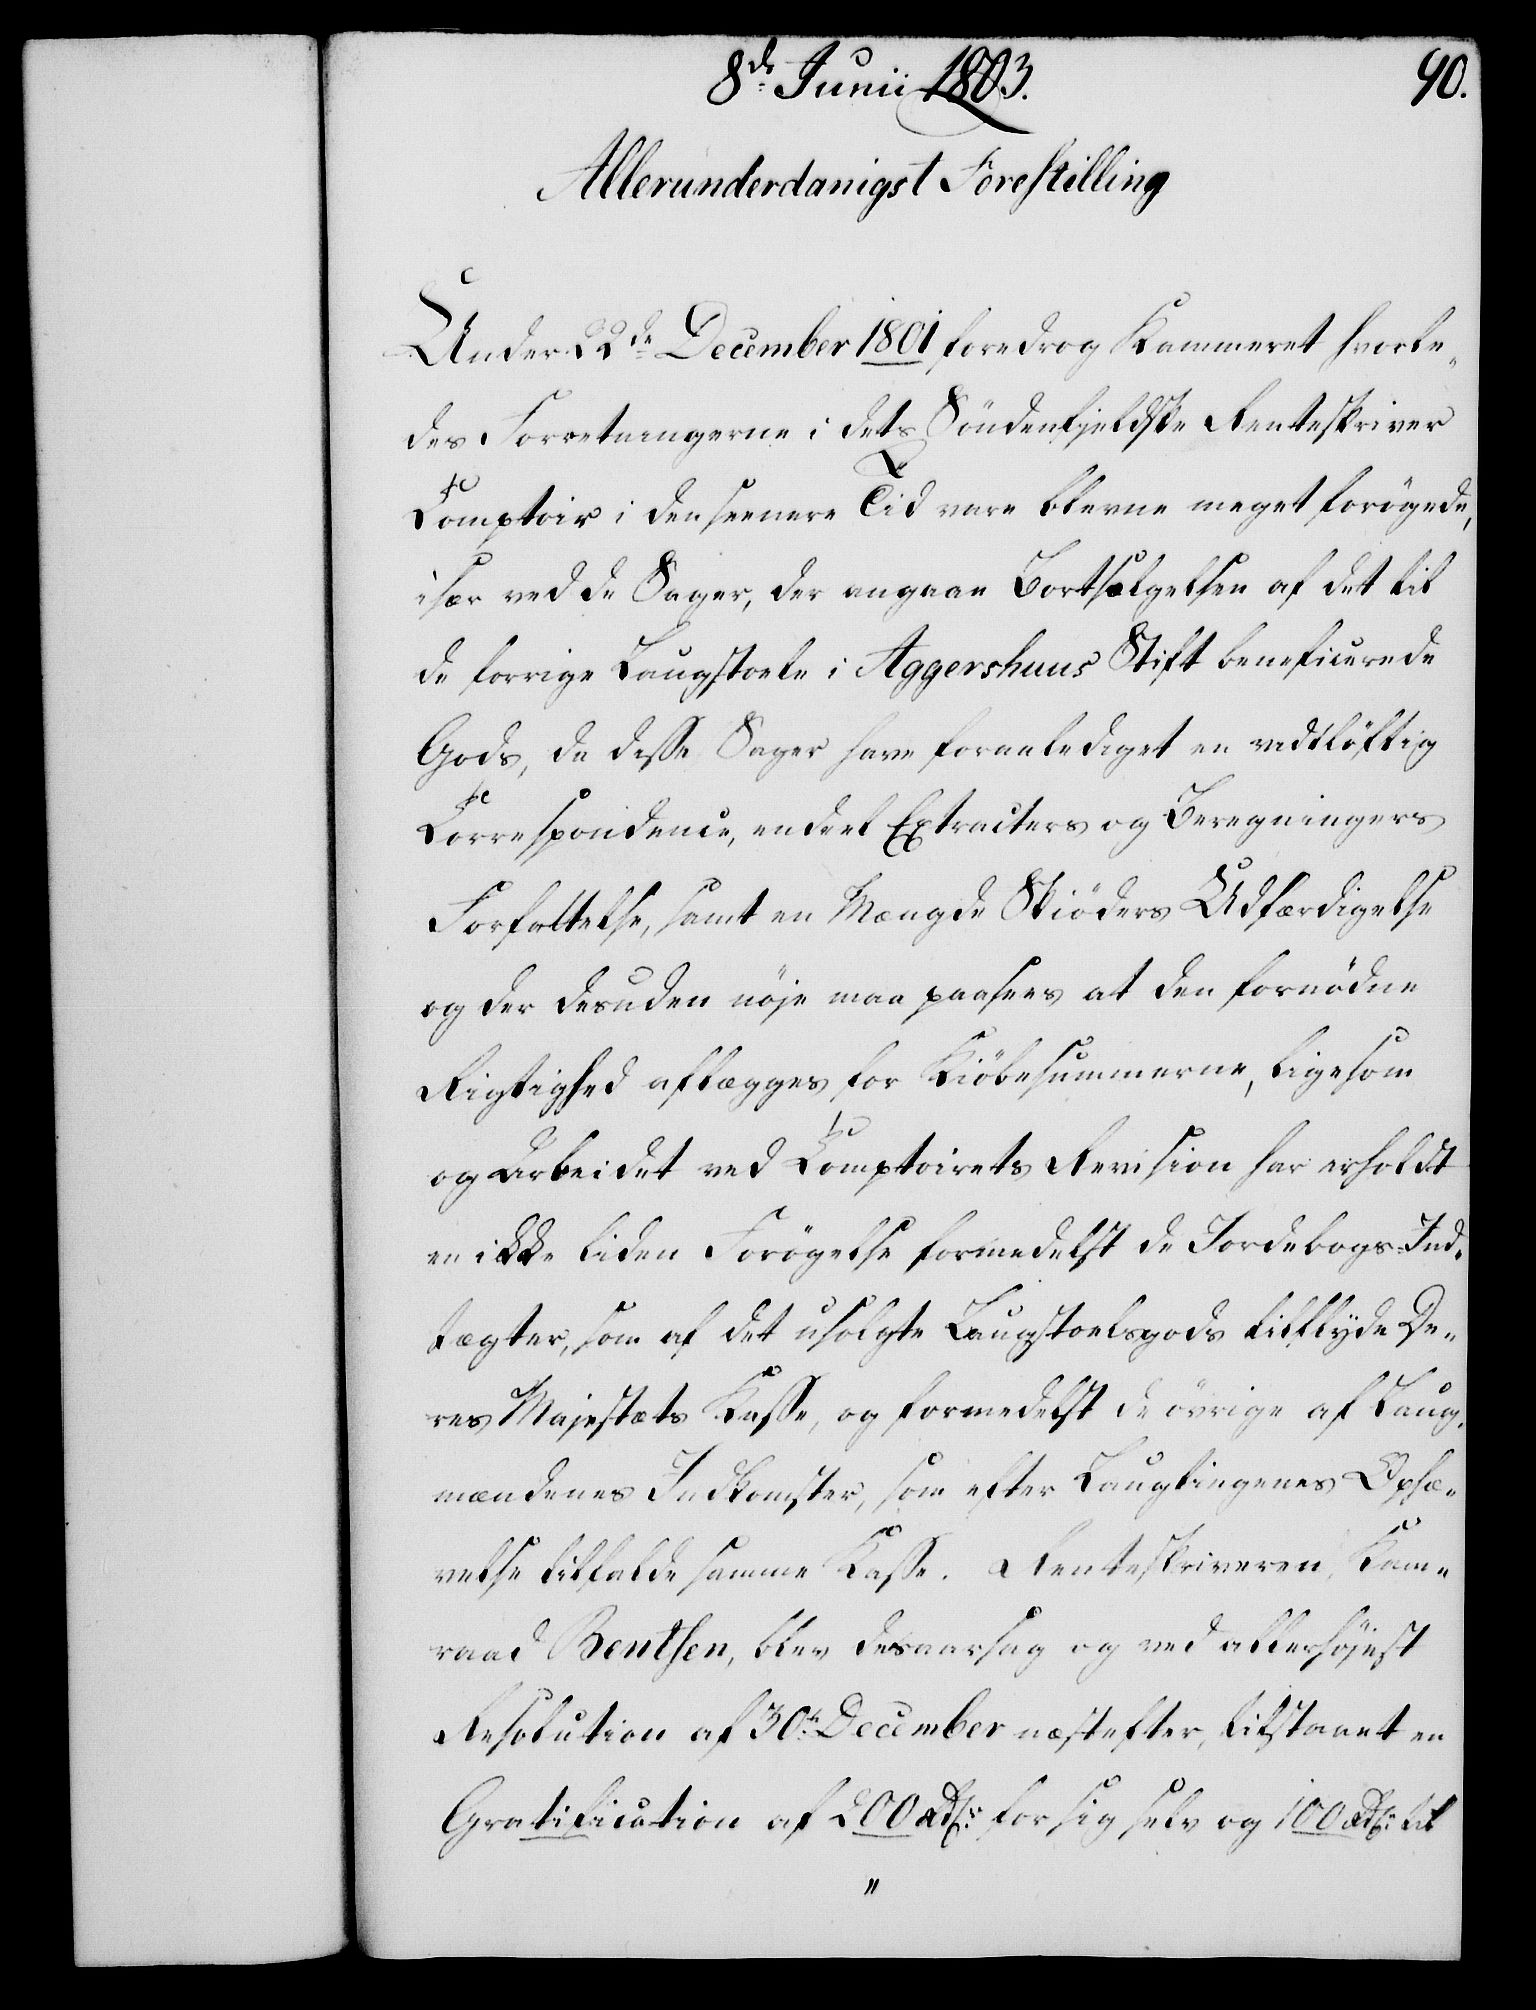 8de Junii 1803.
90.
Allerunderdanigst Forestilling
Under 22de December 1801 foredrog Kammeret hvorle„
des Forretningerne i dets Söndenfjeldske Renteskriver
Comptoir i den seenere Tid vare blevne meget forögede,
især ved de Sager, der angaae Bortsælgelsen af det til
de forrige Laugstoele i Aggershuus Stift beneficerede
Gods, da disse Sager have foranlediget en vidtlöftig
Correspondence, endeel Extracters og Beregningers
Forfattelse, samt en Mængde Skiöders Udfærdigelse
og der desuden nöje maa paasees at den fornödne
Rigtighed aflægges for Kiöbesummerne, ligesom
og Arbeidet ved Comptoirets Revision har erholdt
en ikke liden Forögelse formedelst de Jordebogs-Ind„
tægter, som af det usolgte Laugstoelsgods tilflyde De„
res Majestæts Kasse, og formedelst de övrige af Laug„
mændenes Indkomster, som efter Laugtingenes Ophæ„
velse tilfalde samme Kasse. Renteskriveren, Kam„
raad Benthsen, blev desaarsag og ved allerhöjest
Resolution af 30te December næstefter, tilstaaet en
Gratification af 200 Rdlr for sig selv og 100 Rdlr til
"